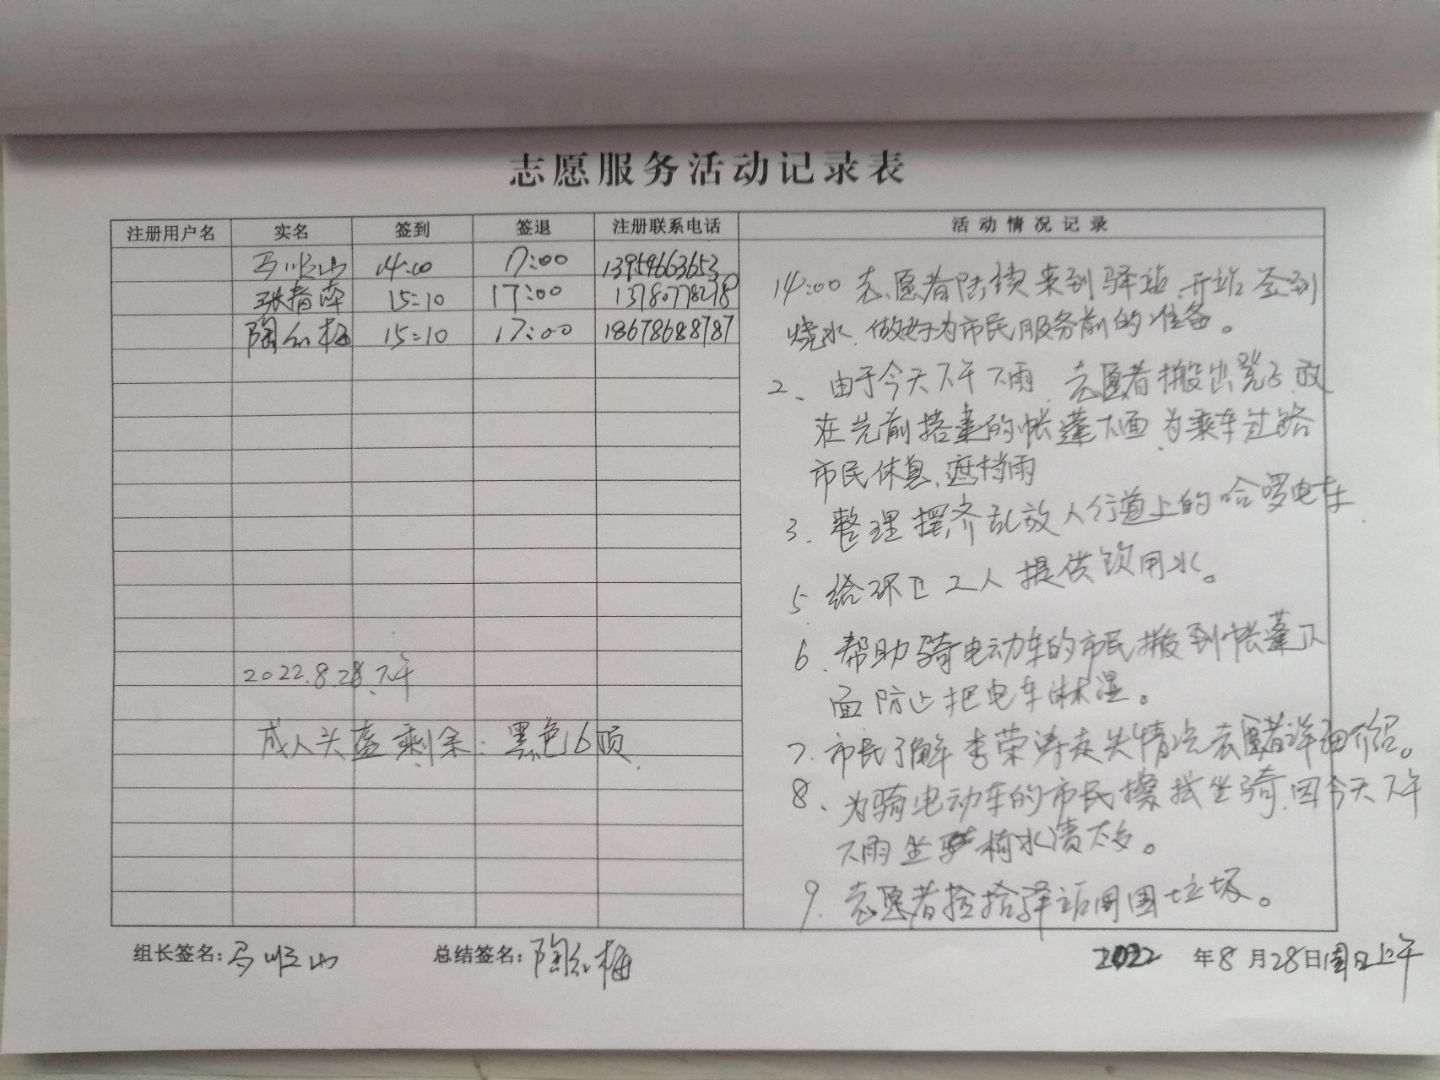 志愿服务活动记录表
注册用户名 实名 签到 签退 注册联系电话 活动情况记录
马顺山 14:00 17:00 13959663653
15:10 17:00 13780778278
陶红梅 15:10 17:00 18678688787
14:00 志愿者陆续来到驿站、开站签到
烧水、做好为市民服务前的准备。
2、由于今天下午下雨、志愿者搬出凳子放
在先前搭建的帐蓬下面、为乘车过路
市民休息、遮挡雨
3、整理摆齐乱放人行道上的哈啰电车
5、给环卫工人提供饮用水。
6、帮助骑电动车的市民搬到帐蓬下
面防止把电车淋湿。
7、市民了解李荣涛走失情况志愿者详细介绍。
8、为骑电动车的市民擦拭坐骑、因今天下午
下雨坐椅水渍太多。
9、志愿者捡拾驿站周围垃圾。
2022.8.28.下午
成人头盔剩余：黑色16顶
组长签名：马顺山 总结签名：陶红梅 2022 年8月28日周日上午